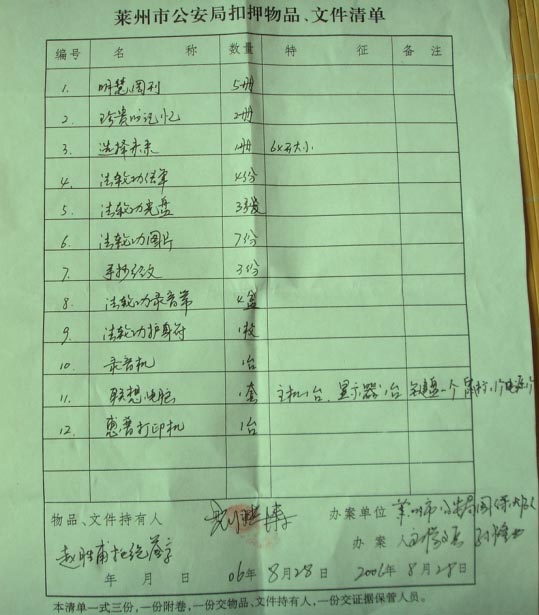 莱州市公安局扣押物品、文件清单
编号 名称 数量 特征 备注
1. 明慧周刊 5册
2. 珍贵的记忆 2册
3. 选择未来 1册 6x开大小
4. 法轮功传单 4份
5. 法轮功光盘 3张
6. 法轮功图片 7份
7. 手抄经文 3份
8. 法轮功录音带 4盒
9. 法轮功护身符 1枚
10. 录音机 1台
11. 联想电脑 1套 主机1台、显示器1台 键盘一个
12. 惠普打印机 1台
物品、文件持有人 办案单位 莱州市公安局国保大队
赵胜甫拒绝签字 办案人
年 月 日 06年8月28日 2006年8月28日
本清单一式三份,一份附卷,一份交物品、文件持有人,一份交证据保管人员。